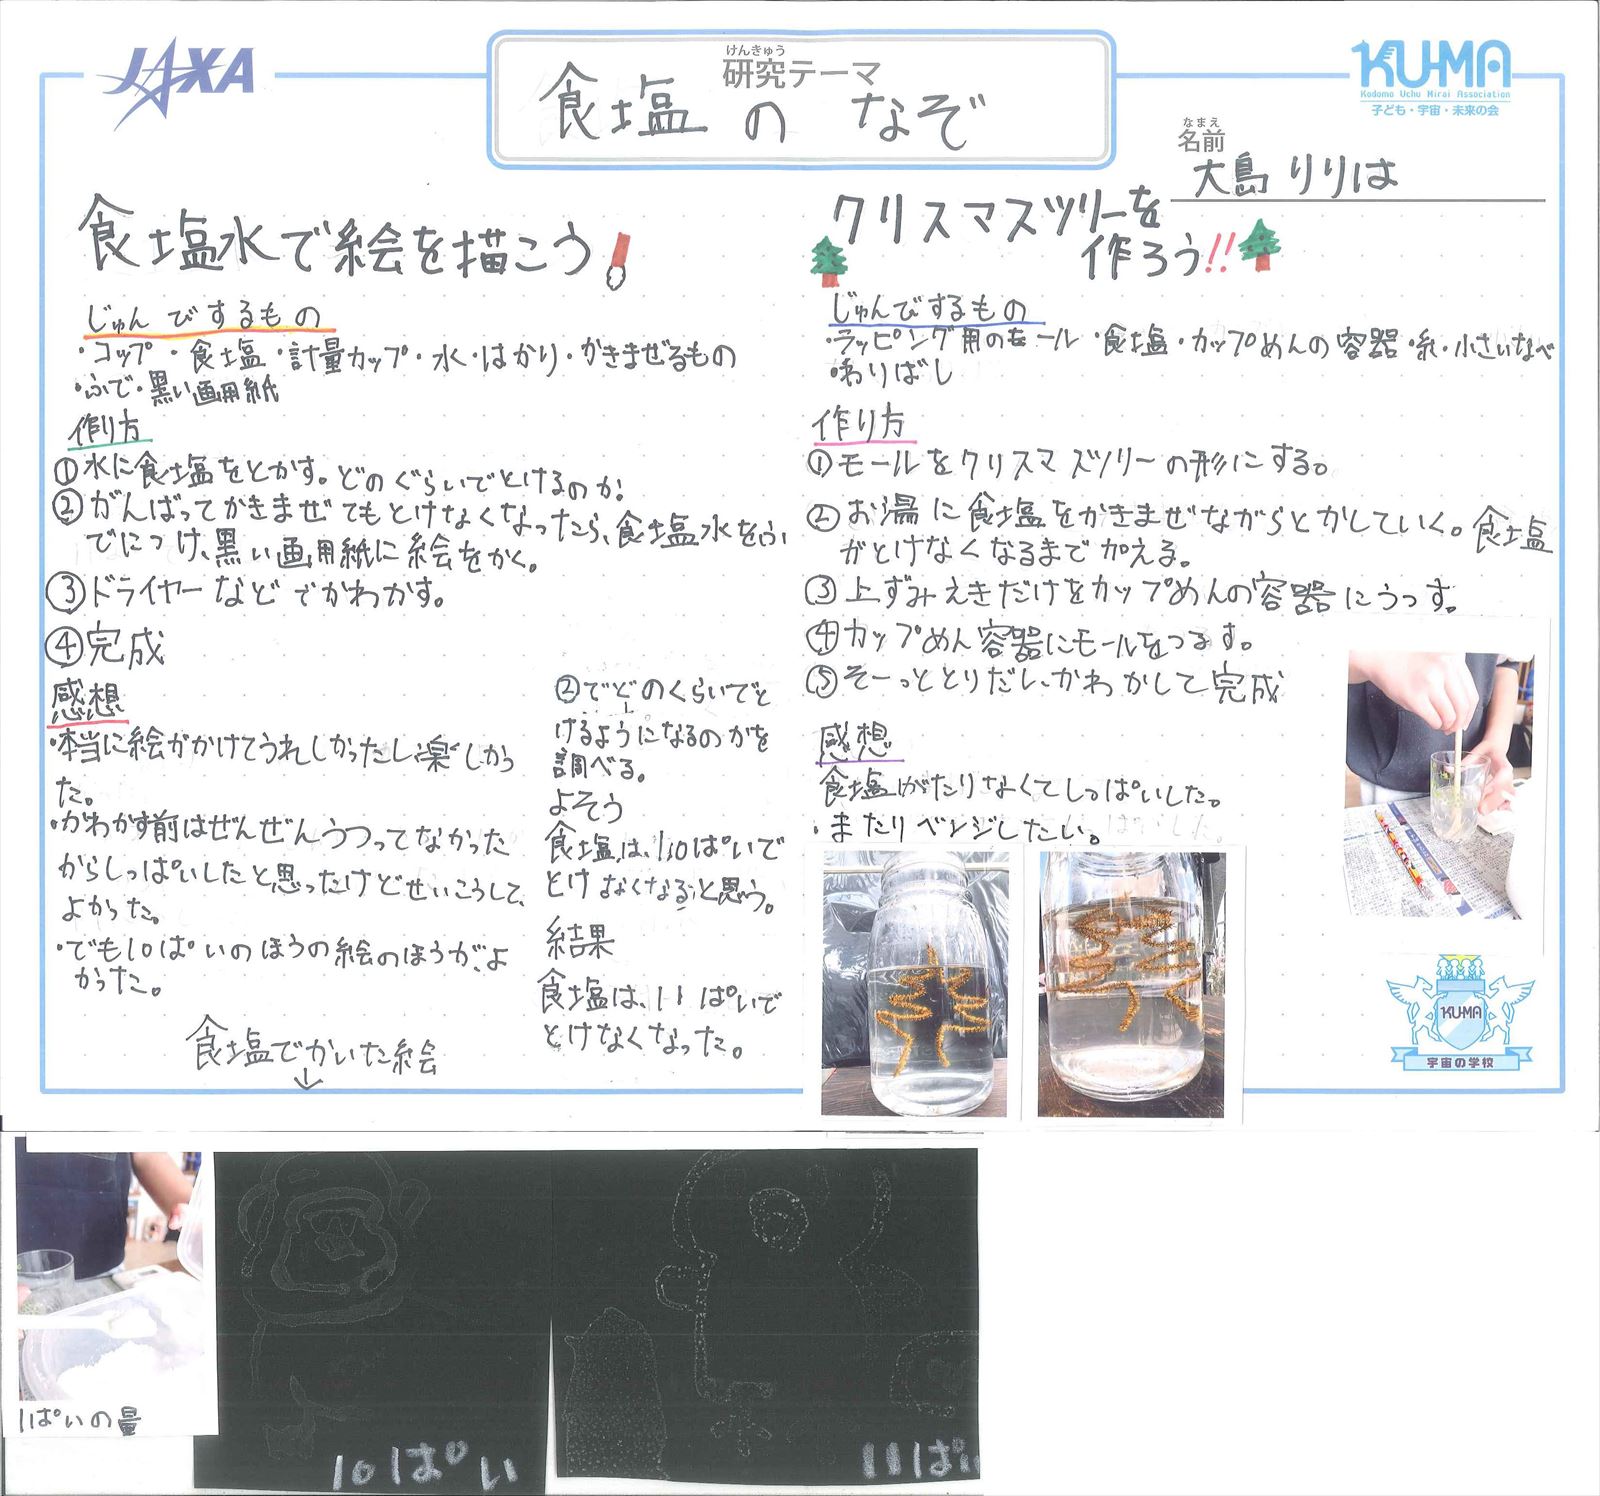 JAXA
けんきゅう
研究テーマ
食塩のなぞ
KU-MA
Kodomo Uchu Mirai Association
子ども・宇宙・未来の会
なまえ
名前
大島りりは
食塩水で絵を描こう
じゅんびするもの
・コップ・食塩・計量カップ・水・はかり・かきまぜるもの
・ふで・黒い画用紙
作り方
①水に食塩をとかす。どのぐらいでとけるのか。
②がんばってかきまぜてもとけなくなったら、食塩水をふ
でにつけ、黒い画用紙に絵をかく。
③ドライヤーなどでかわかす。
④完成
感想
・本当に絵がかけてうれしかったし楽しかっ
た。
・かわかす前はぜんぜんうつってなかった
からしっぱいしたと思ったけどせいこうして、
よかった。
・でも10ぱいのほうの絵のほうが、よ
かった。
食塩でかいた絵
↓
②でどのくらいでと
けるようになるのかを
調べる。
よそう
食塩は、10ぱいで
とけなくなると思う。
結果
食塩は、11ぱいで
とけなくなった。
クリスマスツリーを
作ろう!!
じゅんびするもの
・ラッピング用のモール・食塩・カップめんの容器・糸・小さいなべ
・わりばし
作り方
①モールをクリスマスツリーの形にする。
②お湯に食塩をかきまぜながらとかしていく。食塩
がとけなくなるまで加える。
③上ずみえきだけをカップめんの容器にうつす。
④カップめん容器にモールをつるす。
⑤そーっととりだし、かわかして完成
感想
食塩がたりなくてしっぱいした。
・またリベンジしたい。
KU-MA
宇宙の学校
1ぱいの量
10ぱい
11ぱい